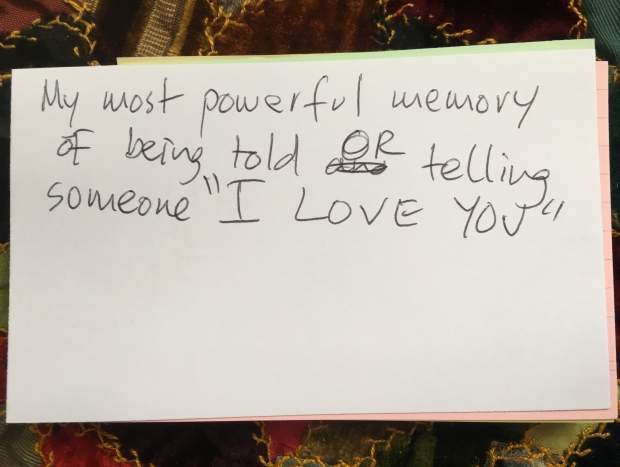 My most powerful memory
of being told OR telling
someone "I LOVE YOU"